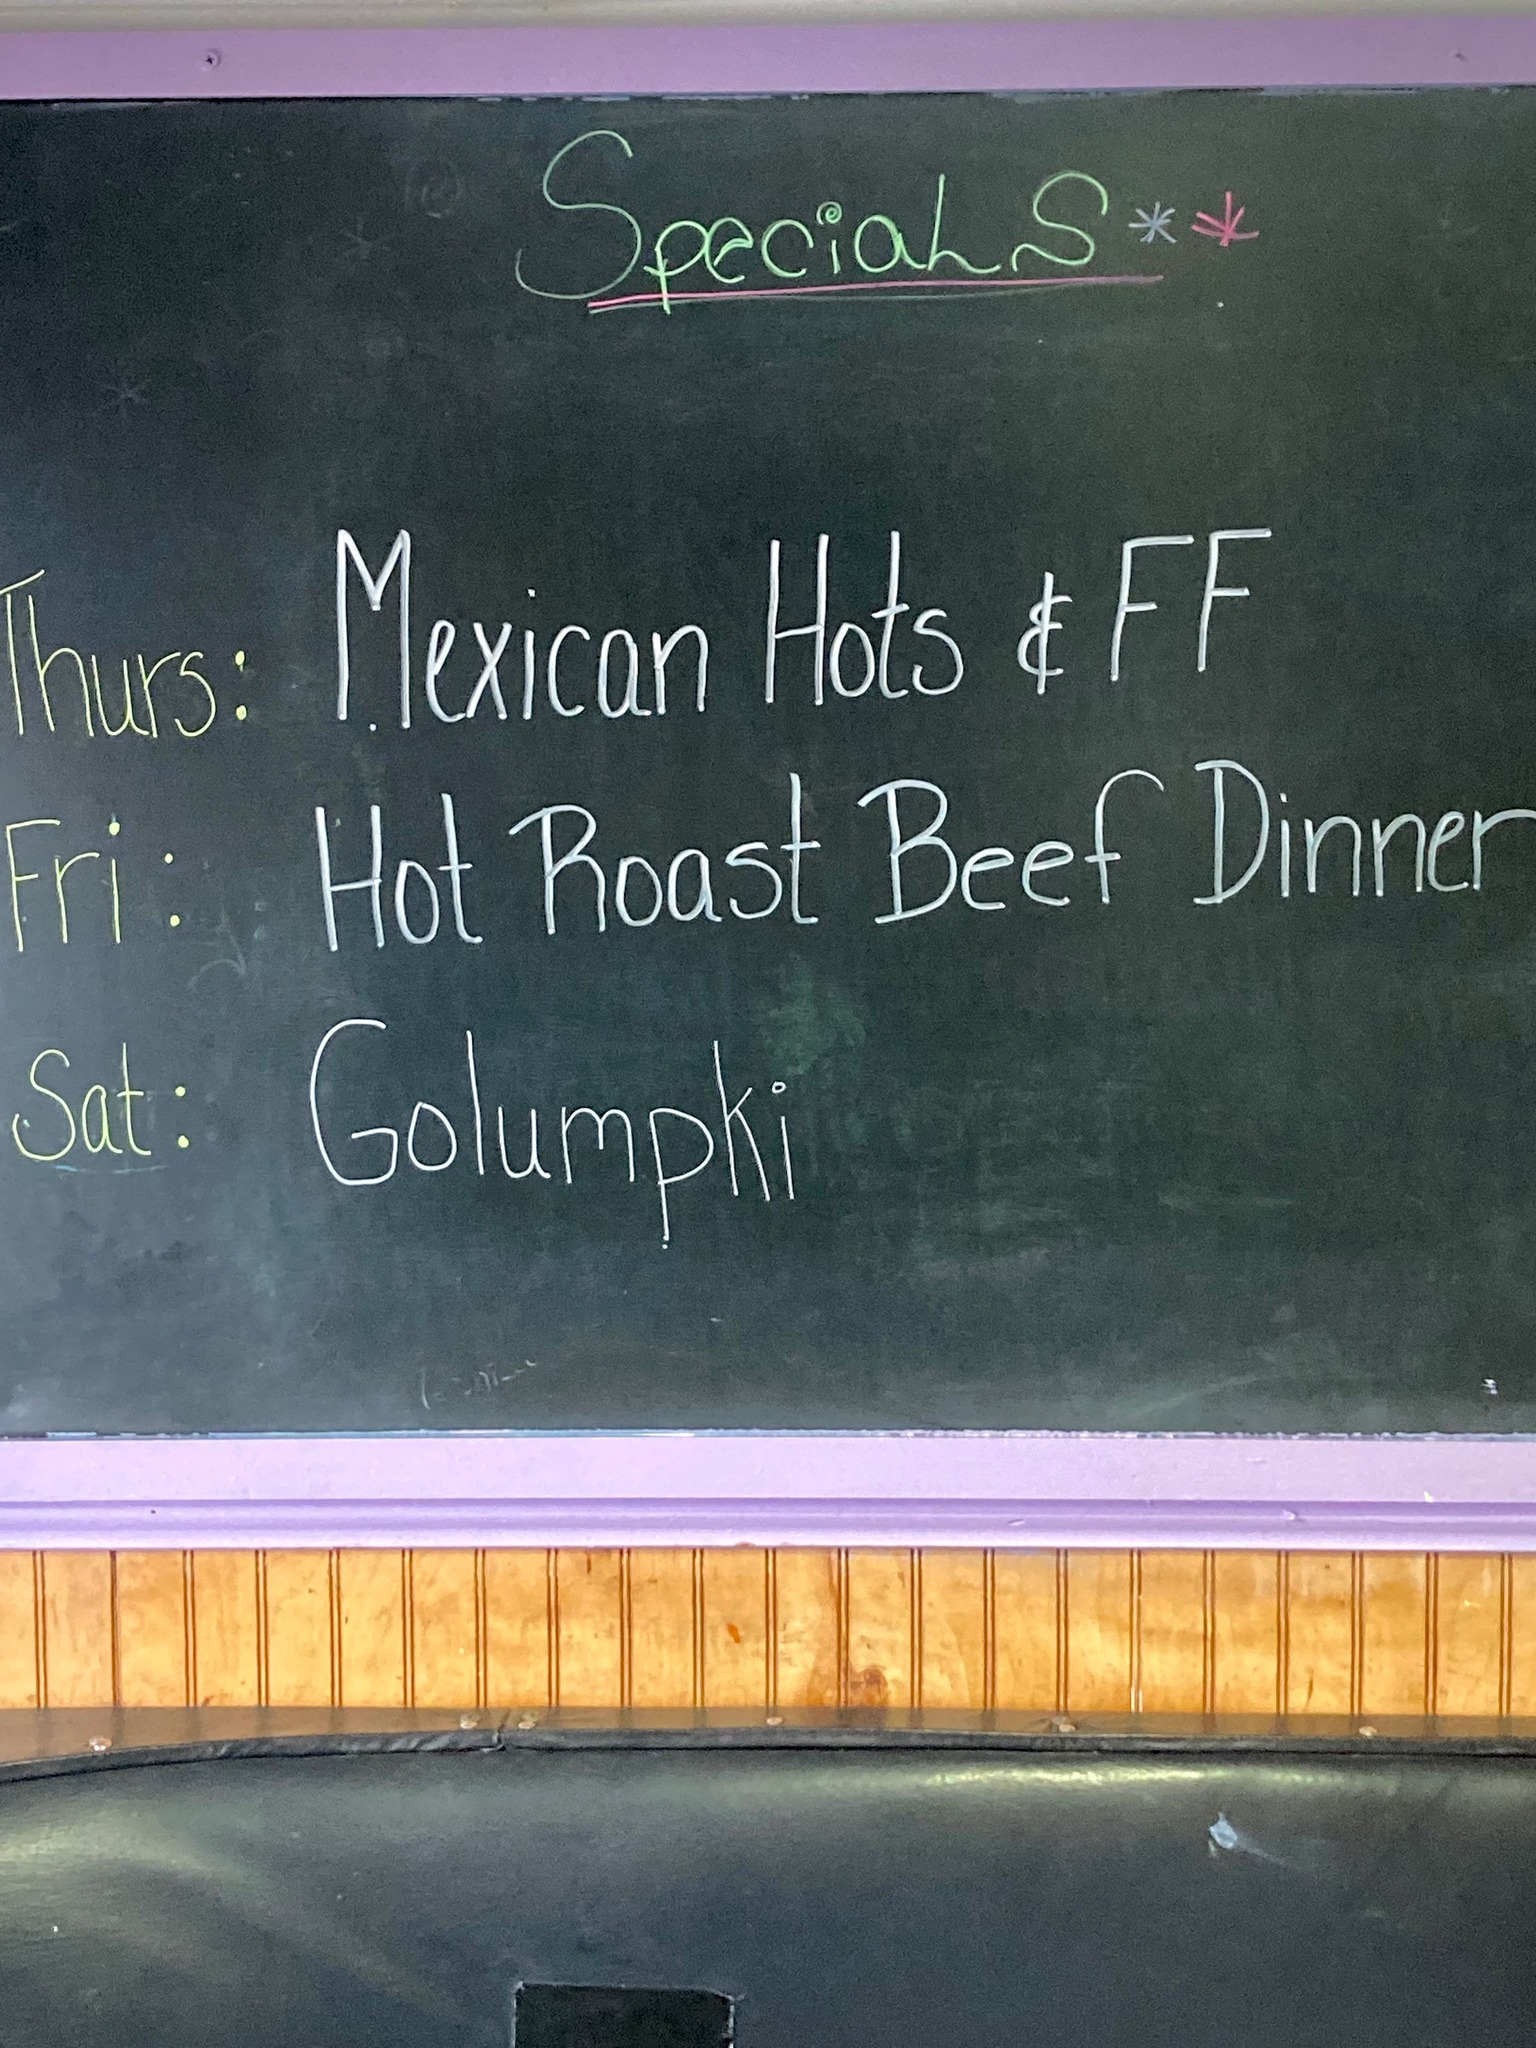 SpeciaLS**
Thurs: Mexican Hots & FF
Fri: Hot Roast Beef Dinner
Sat: Golumpki